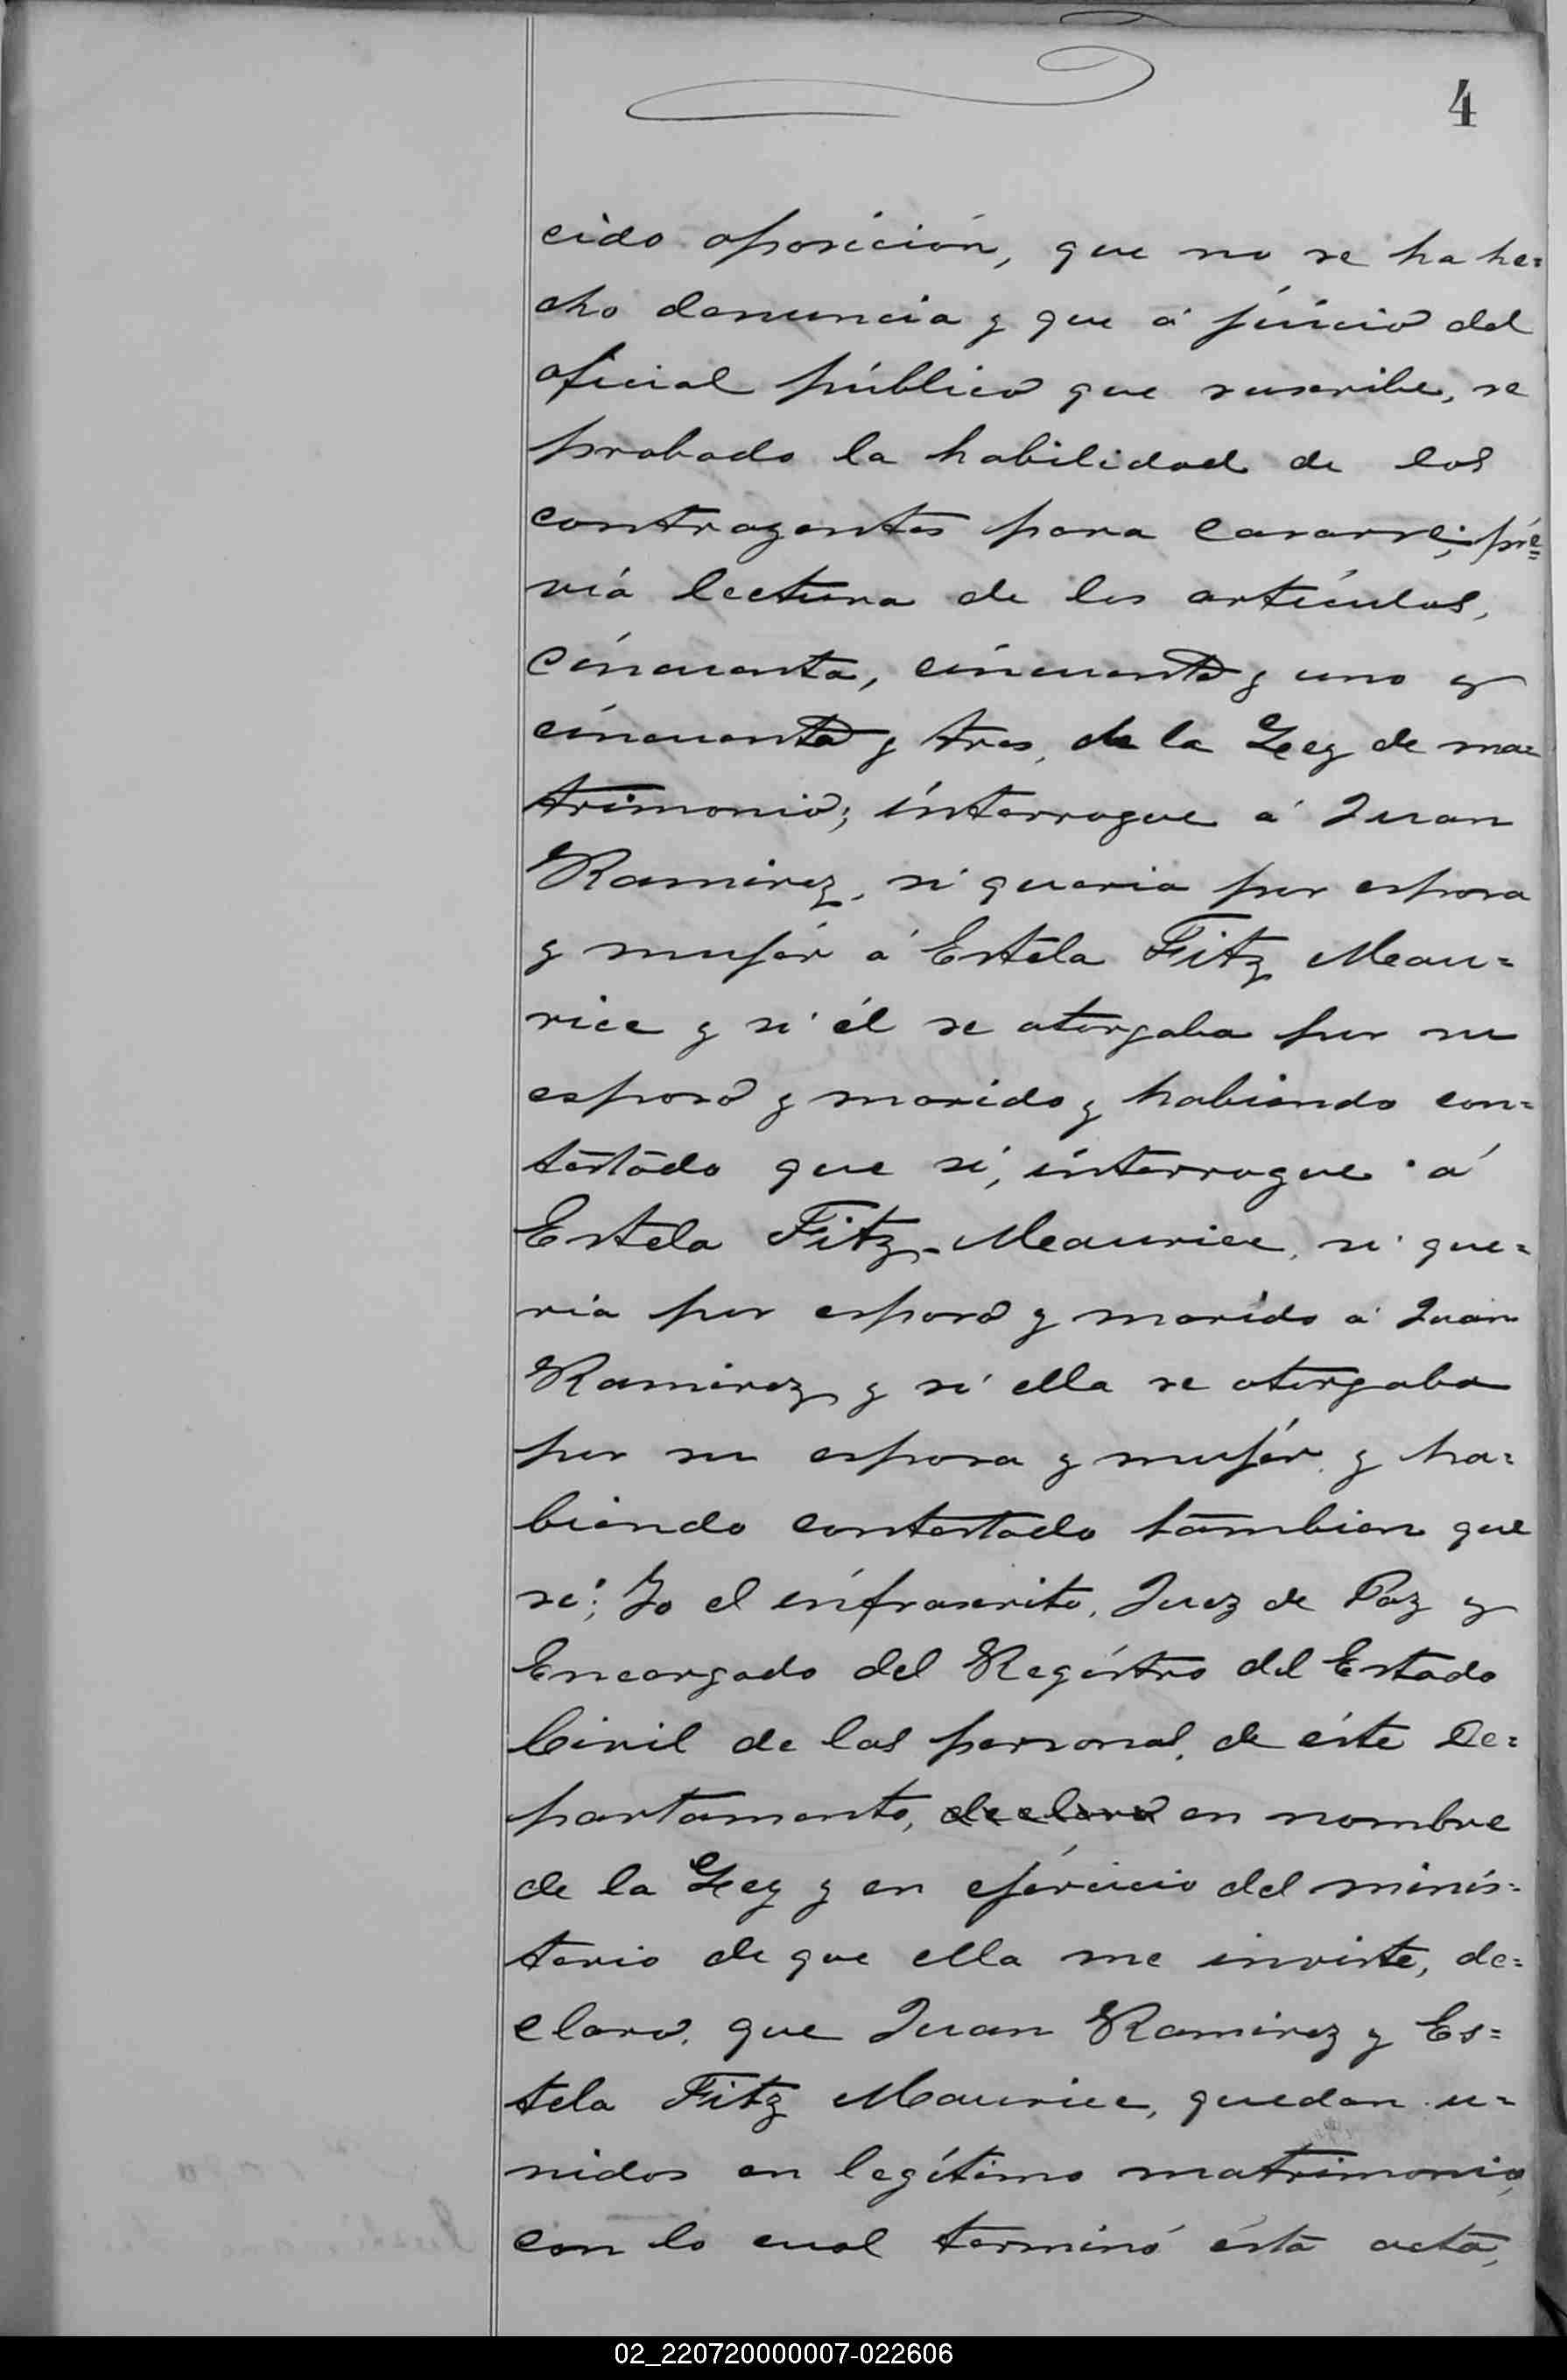 4
cido oposición, que no se ha he=
cho denuncia y que á juicio del
oficial público que suscribe, se
probado la habilidad de los
contrayentes para casarse; pre=
via lectura de los artículos,
cincuenta, cincuenta y uno y
cincuenta y tres, de la Ley de ma=
trimonio; interrogue á Juan
Ramirez, si queria por esposa
y mujér á Estela Fitz Meau=
rice y si él se otorgaba por su
esposo y marido y habiendo con=
testado que sí, interrogue á
Estela Fitz-Meaurice, si que=
ria por esposo y marido á Juan
Ramirez y si ella se otorgaba
por su esposa y mujér y ha=
biendo contestado tambien que
si; Yo el infrascrito, Juez de Paz y
Encargado del Registro del Estado
Civil de las personas, de éste De=
partamento, declaro en nombre
de la Ley y en ejército del minis=
terio de que ella me inviste, de=
claro, que Juan Ramirez y Es=
tela Fitz Maurice, quedan u=
nidos en legítimo matrimonio,
con lo cual terminó ésta acta,
02_220720000007-022606